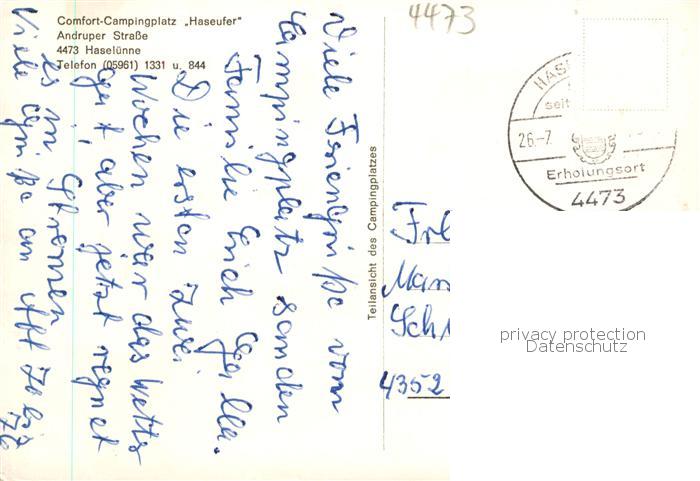 Comfort-Campingplatz „Haseufer"
Andruper Straße
4473 Haselünne
Telefon (05961) 1331 u. 844
Viele Feriengrüße vom
Campingplatz senden
Familie Erich
Die ersten zwei
Wochen war das Wetter
gut aber jetzt regnet
es in Strömen
Viele Grüße an
Teilansicht des Campingplatzes
4473
HAS
seit
26.-7.
Erholungsort
4473
Frl
Schr
4352
privacy protection
Datenschutz